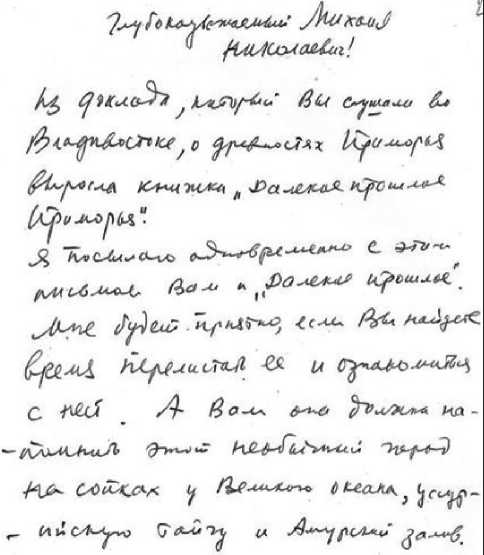 Глубокоуважаемый Михаил
Николаевич!
Из доклада, который Вы слушали во
Владивостоке, о древностях Приморья
выросла книжка „Далекое прошлое
Приморья".
Я посылаю одновременно с этим
письмом Вам и „Далекое прошлое".
Мне будет приятно, если Вы найдете
время перелистать ее и ознакомиться
с ней. А Вам она должна на-
-помнить этот необычный город
на сопках у Великого океана, уссур-
-ийскую тайгу и Амурский залив.